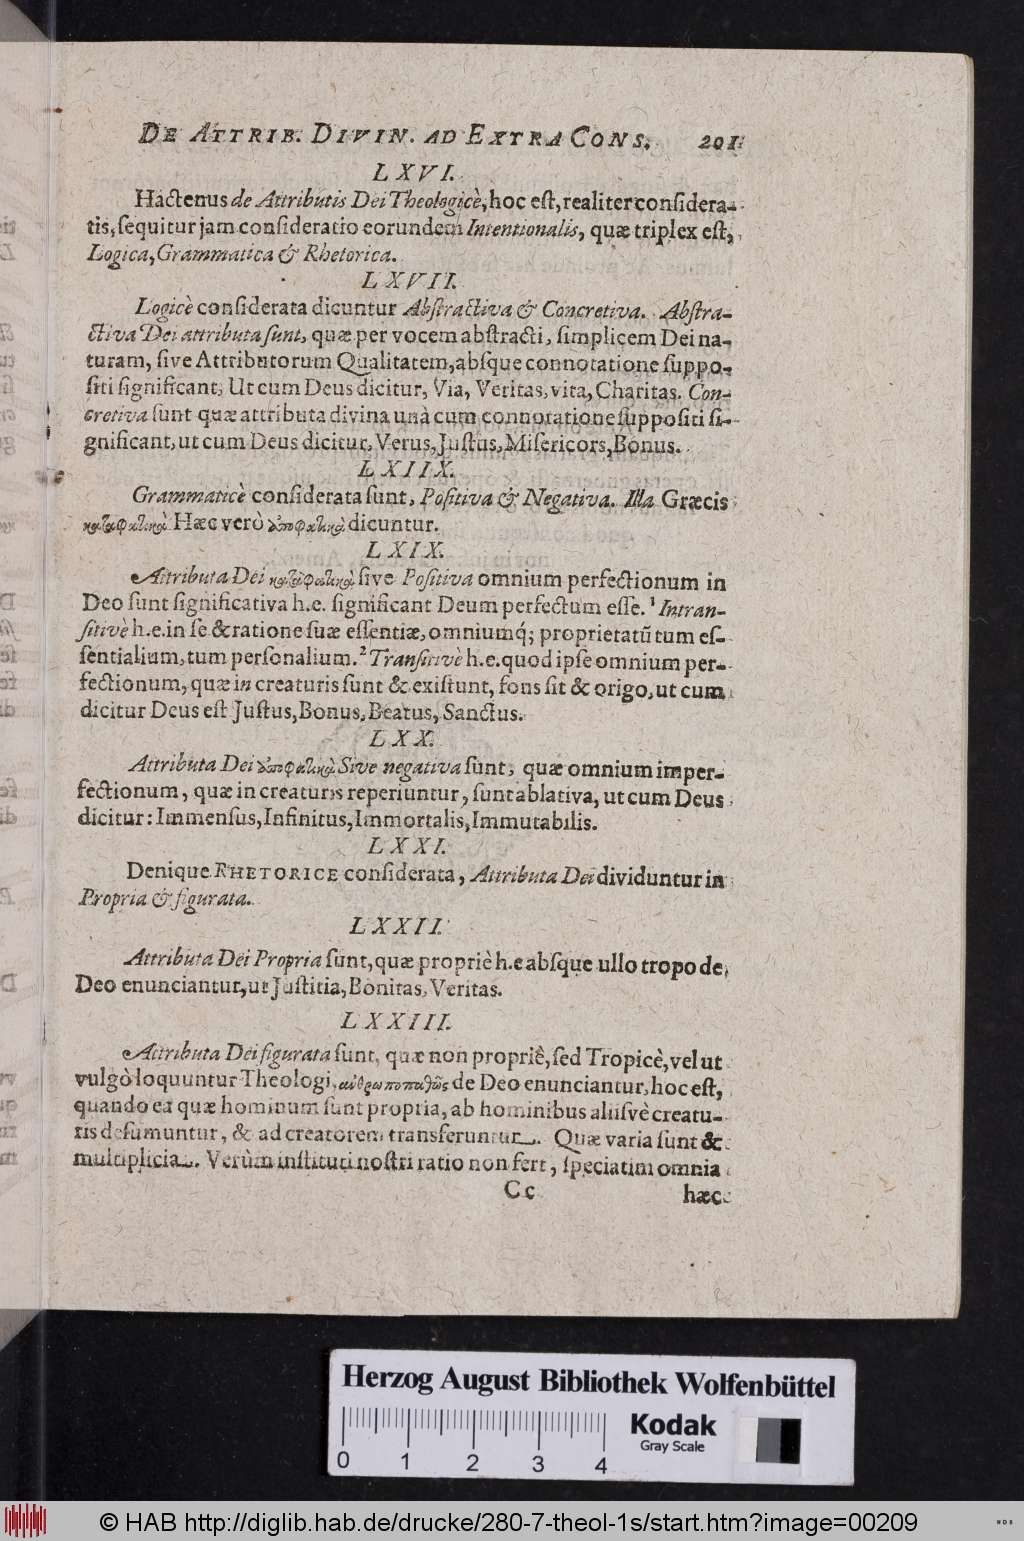 DE ATTRIB. DIVIN. AD EXTRA CONS. 201
LXVI.
Hactenus de Attributis Dei Theologicè, hoc est, realiter considera-
tis, sequitur jam consideratio eorundem Intentionalis, quæ triplex est,
Logica, Grammatica & Rhetorica.
LXVII.
Logicè considerata dicuntur Abstractiva & Concretiva. Abstra-
ctiva Dei attributa sunt, quæ per vocem abstracti, simplicem Dei na-
turam, sive Attributorum Qualitatem, absque connotatione suppo-
siti significant, Ut cum Deus dicitur, Via, Veritas, vita, Charitas. Con-
cretiva sunt quæ attributa divina unà cum connotatione suppositi si-
gnificant, ut cum Deus dicitur, Verus, Justus, Misericors, Bonus.
LXIIX.
Grammaticè considerata sunt, Positiva & Negativa. Illa Græcis
καταφατικὰ Hæc verò ἀποφατικὰ dicuntur.
LXIX.
Attributa Dei καταφατικὰ sive Positiva omnium perfectionum in
Deo sunt significativa h.e. significant Deum perfectum esse. 1 Intran-
sitivè h.e. in se & ratione suæ essentiæ, omniumq́; proprietatũ tum es-
sentialium, tum personalium. 2 Transitivè h.e. quod ipse omnium per-
fectionum, quæ in creaturis sunt & existunt, fons sit & origo, ut cum
dicitur Deus est Justus, Bonus, Beatus, Sanctus.
LXX.
Attributa Dei ἀποφατικὰ Sive negativa sunt, quæ omnium imper-
fectionum, quæ in creaturis reperiuntur, sunt ablativa, ut cum Deus
dicitur: Immensus, Infinitus, Immortalis, Immutabilis.
LXXI.
Denique RHETORICE considerata, Attributa Dei dividuntur in
Propria & figurata.
LXXII.
Attributa Dei Propria sunt, quæ propriè h.e absque ullo tropo de
Deo enunciantur, ut Justitia, Bonitas, Veritas.
LXXIII.
Attributa Dei figurata sunt, quæ non propriè, sed Tropicè, vel ut
vulgò loquuntur Theologi, ανθρωποπαθῶς de Deo enunciantur, hoc est,
quando ea quæ hominum sunt propria, ab hominibus aliisvè creatu-
ris desumuntur, & ad creatorem transferuntur. Quæ varia sunt &
multiplicia. Verùm instituti nostri ratio non fert, speciatim omnia
Cc hæc
Herzog August Bibliothek Wolfenbüttel
Kodak
Gray Scale
0 1 2 3 4
© HAB http://diglib.hab.de/drucke/280-7-theol-1s/start.htm?image=00209